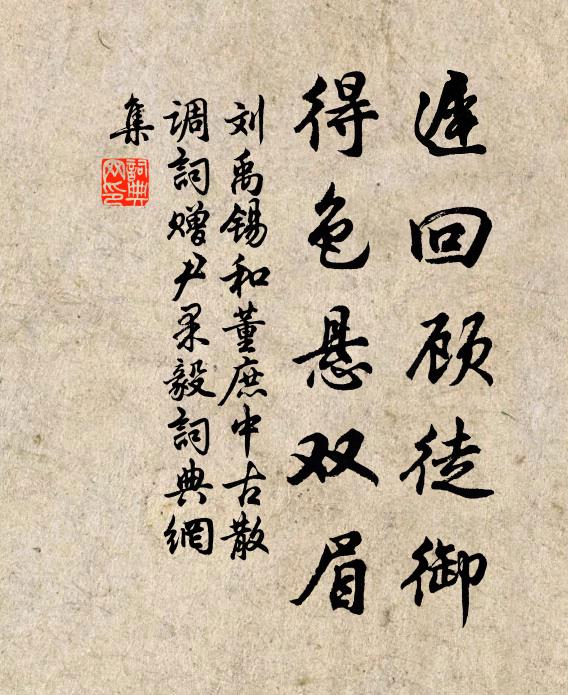 遟回顾徒御
得色悬双眉
刘禹锡和董庶中古散
调詞赠尹果毅詞典網
集
詞典
网印